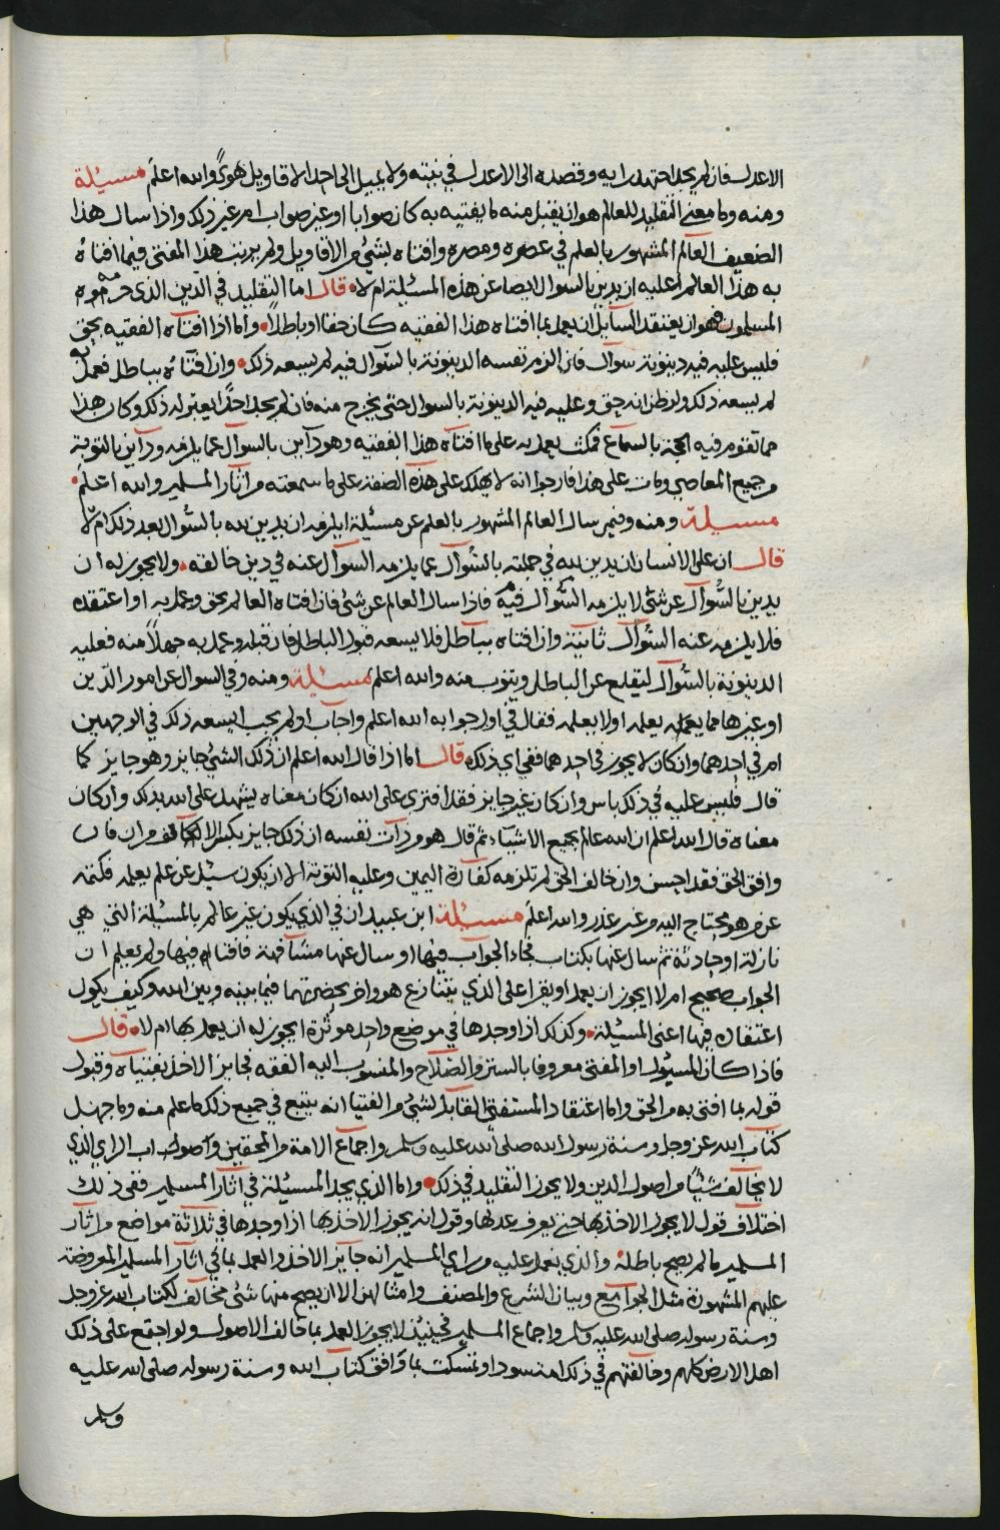 الاعدل فان لم يجد اجتهد رايه وقصده الى الاعدل في نيته ولا يميل الى احد الاقاويل هوًى والله اعلم مسئيلة
ومنه وما معنى التقليد للعالم هو ان يقبل منه ما يفتيه به كان صوابا او غير صواب ام غير ذلك واذا سال هذا
الضعيف العالم المشهور بالعلم في عصره ومصره وافتاه بشئ من الاقاويل ولم يرتب هذا المفتى فيما افتاه
به هذا العالم اعليه ان يدين بالسوال ايضا عن هذه المسئلة ام لا قال اما التقليد في الدين الذي حرموه
المسلمون فهو ان يعتقد السآيل ان يعمل بما افتاه هذا الفقيه كان حقا او باطلاً واما اذا افتاه الفقيه بحق
فليس عليه فيه دينونة سوال فان الزم نفسه الدينونة بالسوال فيه لم يسعه ذلك وان افتاه بباطل فعمل به
لم يسعه ذلك ولو ظن انه حق وعليه فيه الدينونة بالسوال حتى يخرج منه فان لم يجد احدًا يعبر له ذلك وكان هذا
مما تقوم فيه الحجة بالسماع فمكث يعمل به على ما افتاه هذا الفقيه وهو دآين بالسوال عما يلزمه ودآين بالتوبة
من جميع المعاصي ومات على هذا فارجوا انه لا يهلك على هذه الصفة على ما سمعته من آثار المسلمين والله اعلم
مسئيلة ومنه وفيمن سال العالم المشهور بالعلم عن مسئلة ايلزمه ان يدين لله بالسُّوال بعد ذلك ام لا
قال ان على الانسان ان يدين لله في جملته بالسُّوال عما يلزمه السوآل عنه في دين خالقه ولا يجوز له ان
يدين بالسُّوآل عن شئ لا يلزمه السُّوال فيه فاذا سال العالم عن شئ فان افتاه العالم بحق وعمل به او اعتقده
فلا يلزمه عنه السُّوآل ثانية وان افتاه بباطل فلا يسعه قبول الباطل فان قبله وعمل به جهلاً منه فعليه
الدينونة بالسُّوآل ليقلع عن الباطل ويتوب منه والله اعلم مسئيلة ومنه وفي السوال عن امور الدّين
او غيرها مما يعمل به يعلمه اولا يعلمه فقال في اولارجوا به الله اعلم واجاب اولم يجب ايسعه ذلك في الوجهين
ام في احدهما وان كان لا يجوز في احدهما ففي اي ذلك قال اما اذا قال الله اعلم ان ذلك الشئ جايز وهو جايز كما
قال فليس عليه في ذلك باس وان كان غير جايز فقد افترى على الله ان كان معناه يشهد على الله بذلك وان كان
معناه قال الله اعلم ان الله عالم بجميع الاشياء ثم قال هو من ذآت نفسه ان ذلك جايز بكسر الالف من ان فان
وافق الحق فقد احسن وان خالف الحق لم تلزمه كفارة اليمين وعليه التوبة الا ان يكون سئل عن علم يعلمه فكتمه
عن من هو محتاج اليه من غير عذر والله اعلم مسئيلة ابن عبيدان في الذي يكون غير عالم بالمسئلة التي هي
نازلة او حادثة ثم سال عنها بكتاب فجاء الجواب فيها او سال عنها مشآفهة فافتاه فيها ولم يعلم ان
الجواب صحيح ام لا ايجوز ان يعمل او يقرا على الذي يتنازع هو واخر بحضرتهما فيما بينه وبين الله وكيف يكون
اعتقاده فيها اعنى المسئيلة وكذلك اذا وجدها في موضع واحد موثرة ايجوز له ان يعمل بها ام لا قال
فاذا كان المسئول او المفتى معروفا بالستر والصلاح والمنسوب اليه الفقه فجايز الاخذ بفتياه وقبول
قوله بما افتى به من الحق واما اعتقاد المستفتي القابل لشئ من الفتيا انه يتبع في جميع ذلك ما علم منه وما جهل
كتاب الله عز وجل وسنة رسول الله صلى الله عليه وسلم واجماع الامة من المحقين واصول اب الراي الذي
لا يخالف شيئًا من اصول الدين ولا يجوز التقليد في ذلك واما الذي يجد المسئيلة في آثار المسلمين ففى ذلك
اختلاف قول لا يجوز الاخذ بها حتى يعرف عدلها وقول انه يجوز الاخذ بها اذا وجدها في ثلاثة مواضع من اثآر
المسلمين ما لم يصح باطله والذي نعمل عليه من راي المسلمين انه جايز الاخذ والعمل بما في اثآر المسلمين المعروضة
عليهم المشهورة مثل الجوآمع وبيان الشرع والمصنف وامثالهن الا ان يصح منها شئ مخالف لكتاب الله عز وجل
وسنة رسوله صلى الله عليه وسلم واجماع المسلمين فحينيذ لا يجوز العمل بما خالف الاصول ولو اجتمع على ذلك
اهل الارض كلهم وخالفتهم في ذلك امة سودا وتمسكت بما وافق كتاب الله وسنة رسوله صلى الله عليه
وسلم